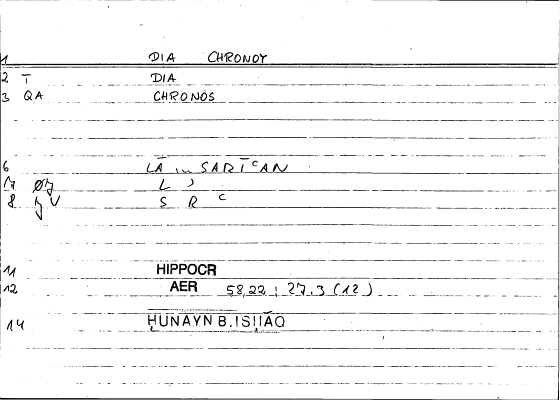 1 DIA CHRONOY
2 T DIA
3 QA CHRONOS
6 LĀ SARĪᶜAN
7 L ʾ
8 S R ᶜ
11 HIPPOCR
12 AER 58,22 ; 27,3 (12)
14 ḤUNAYN B. ISḤĀQ